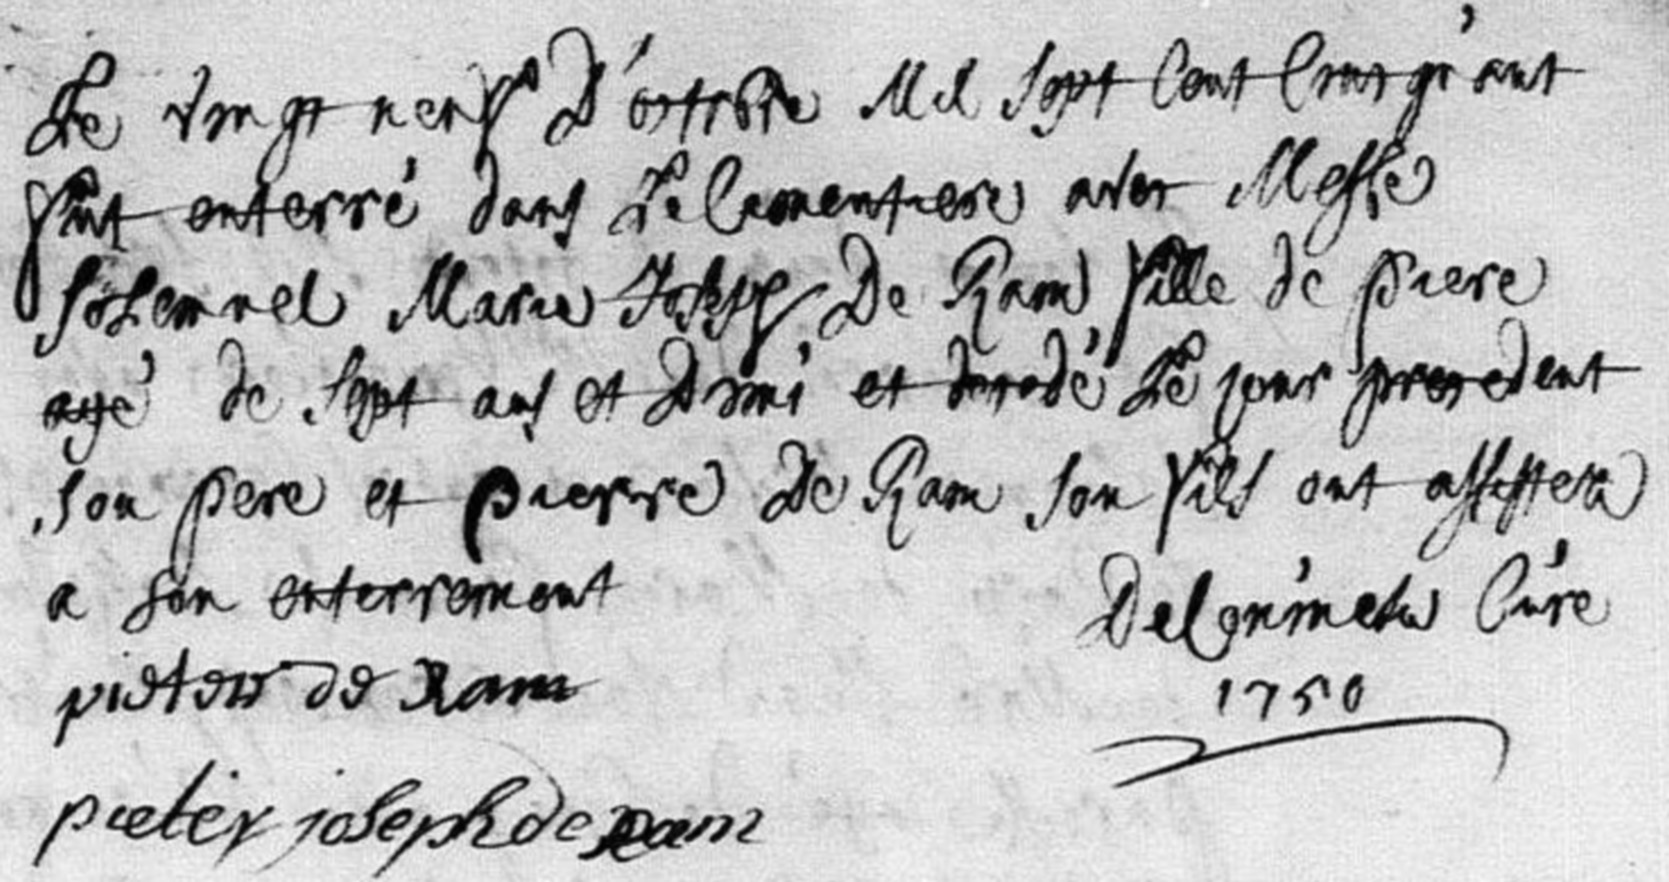 Le vingt nerf d'octobre Mil sept Cent Cinqu'ant
fut enterré dans Le Cimentiere avec Messe
solemnel Marie Joseph De Ram fille de piere
agé de sept ans et Demi et decedé Le jour precedent
son pere et pierre De Ram son fils ont assistera
a son enterrement
Curé
pieter de Ram
1750
pieter joseph de ram